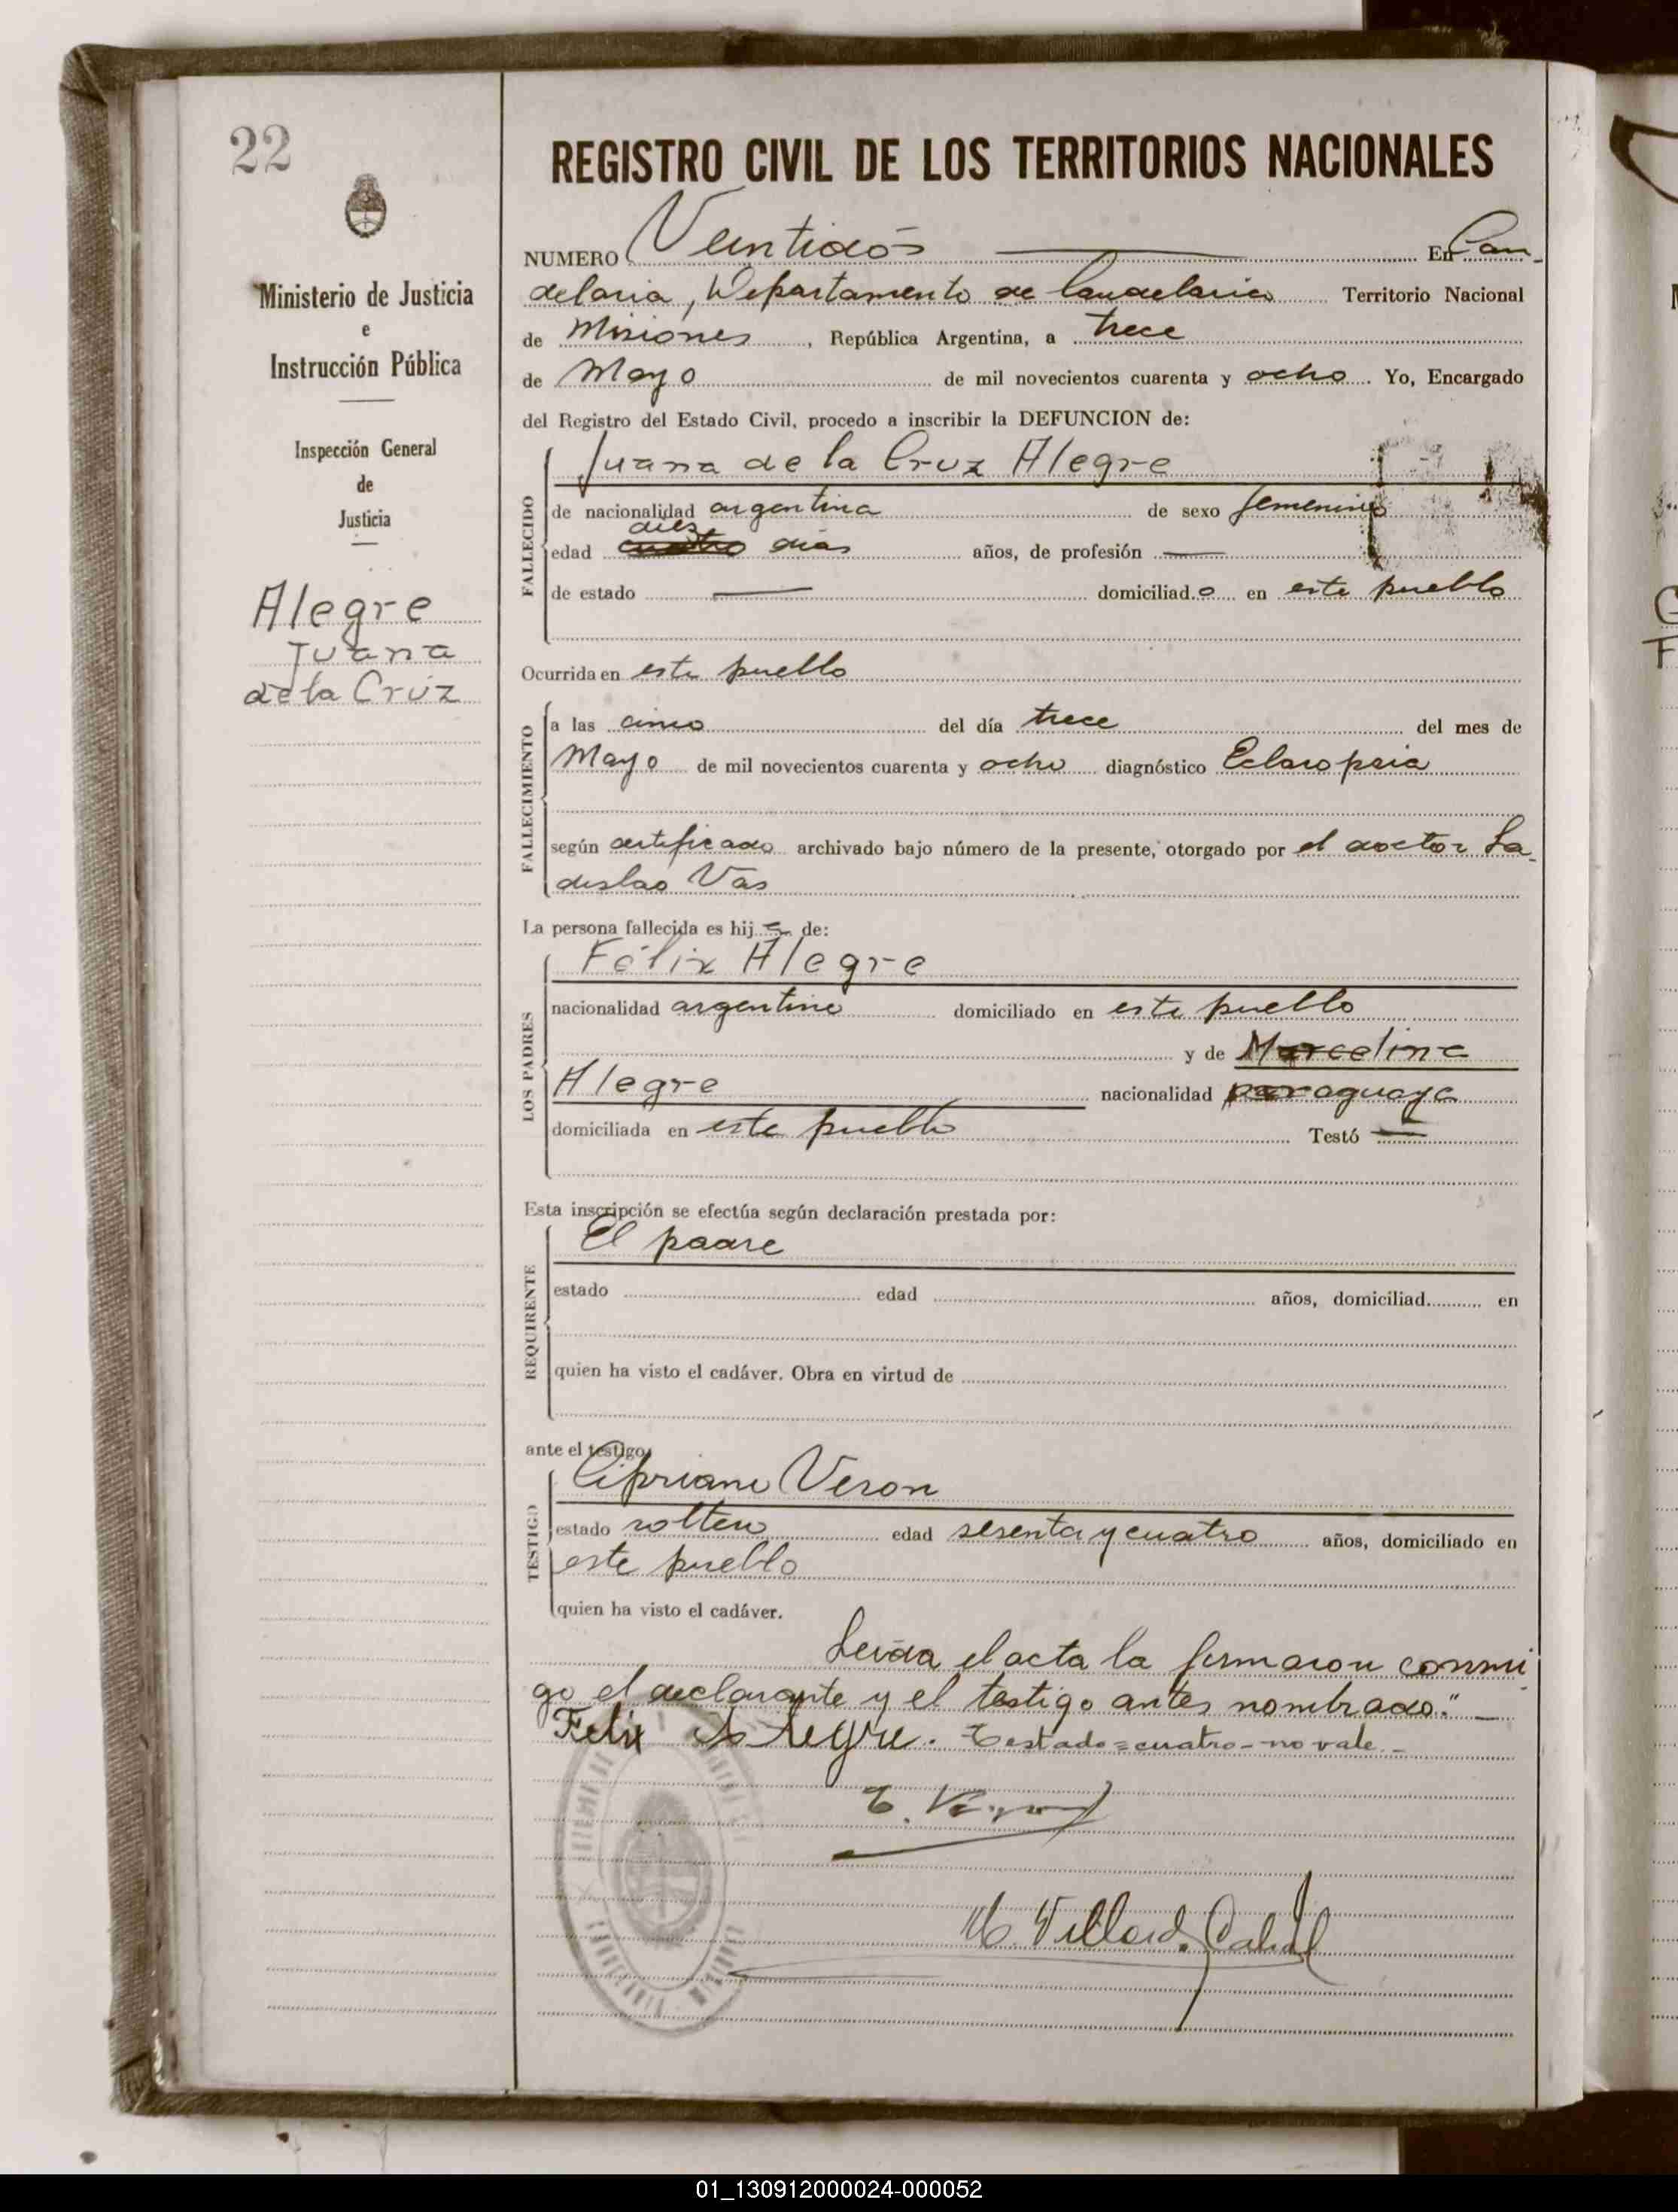 22
REGISTRO CIVIL DE LOS TERRITORIOS NACIONALES
Ministerio de Justicia
e
Instrucción Pública
Inspección General
de
Justicia
Alegre
Juana
de la Cruz
NUMERO Veintidós En Can_
delaria, Departamento de Candelaria Territorio Nacional
de Misiones, República Argentina, a trece
de Mayo de mil novecientos cuarenta y ocho. Yo, Encargado
del Registro del Estado Civil, procedo a inscribir la DEFUNCION de:
Juana de la Cruz Alegre
FALLECIDO
de nacionalidad argentina de sexo femenino
diez
edad cuatro dias años, de profesión —
de estado — domiciliado en este pueblo
Ocurrida en este pueblo
FALLECIMIENTO
a las cinco del día trece del mes de
Mayo de mil novecientos cuarenta y ocho diagnóstico
según certificado archivado bajo número de la presente, otorgado por el doctor La_
dislao Vas
La persona fallecida es hija de:
LOS PADRES
Félix Alegre
nacionalidad argentino domiciliado en este pueblo
y de Marcelina
Alegre nacionalidad paraguaya
domiciliada en este pueblo Testó —
Esta inscripción se efectúa según declaración prestada por:
REQUIRENTE
El padre
estado edad años, domiciliad en
quien ha visto el cadáver. Obra en virtud de
ante el testigo
TESTIGO
Cipriano Veron
estado soltero edad sesenta y cuatro años, domiciliado en
este pueblo
quien ha visto el cadáver.
Leida el acta la firmaron conmi
go el declarante y el testigo antes nombrado."_
Felix Alegre. Testado=cuatro-no vale.-
01_130912000024-000052